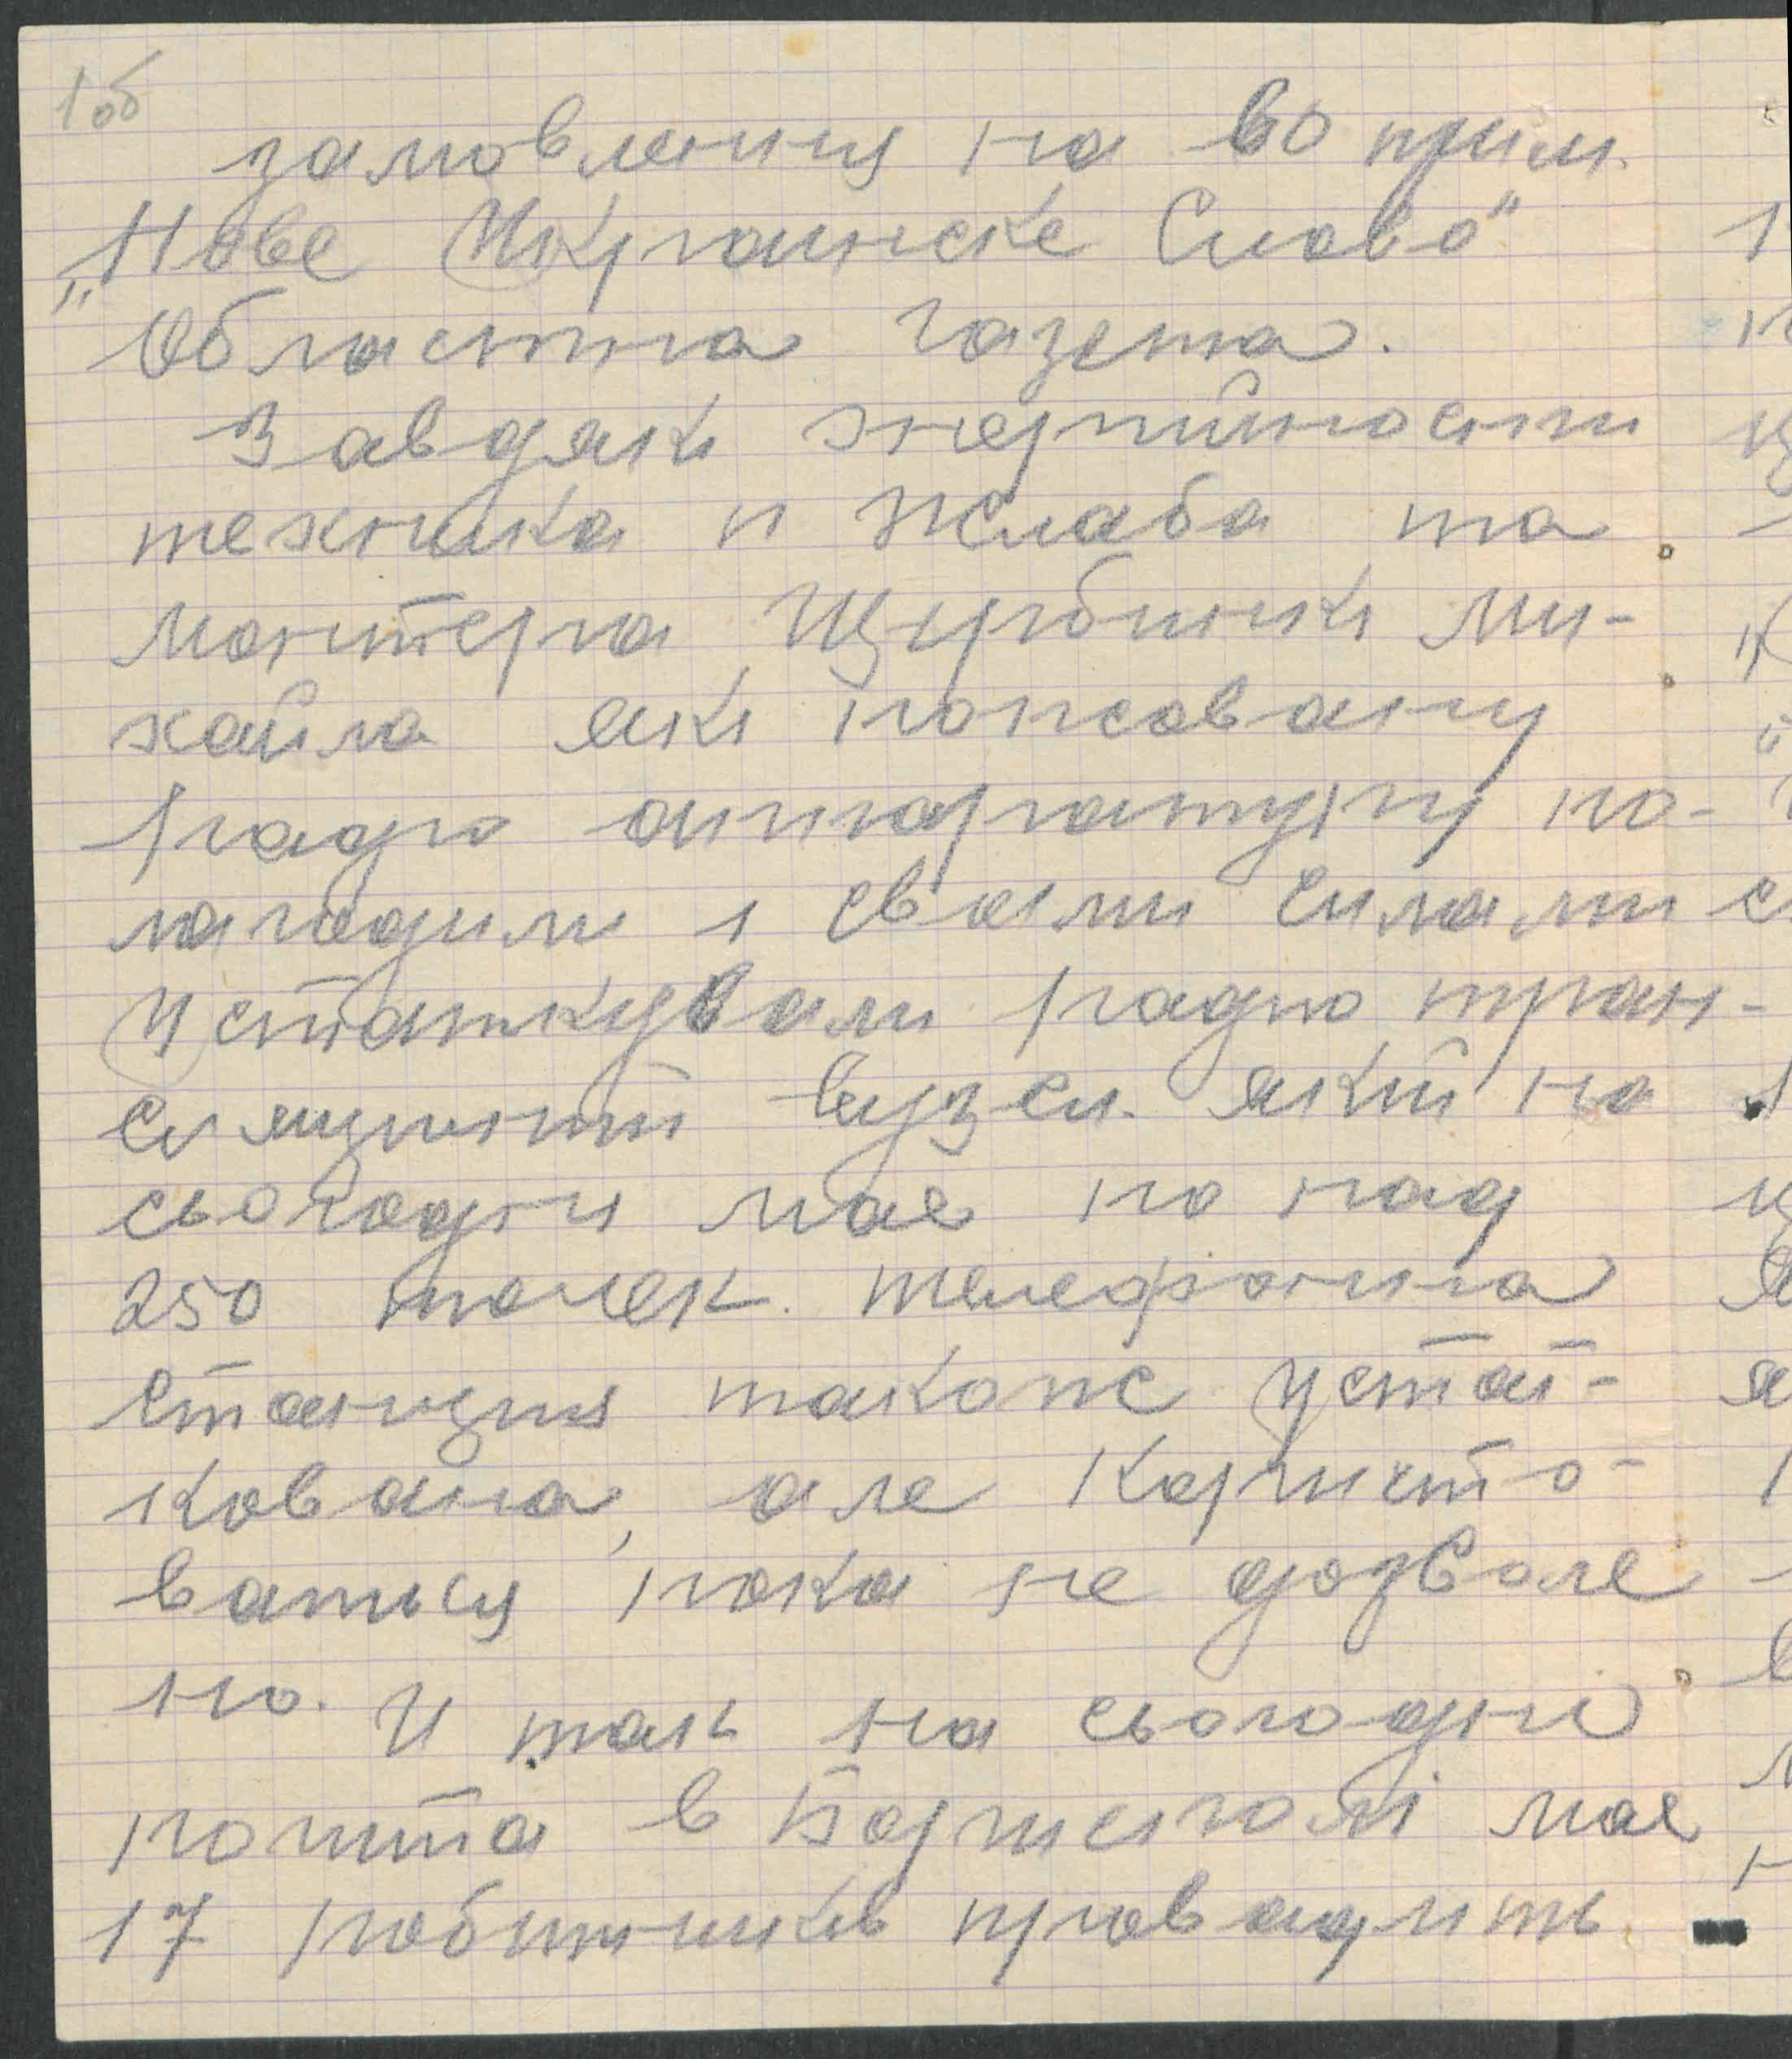 1об
замовлення на 60 прим.
„Нове Украинске Слово"
Обласна газета.
Завдяки энергийности
техника п Жслаба та
монтера Щербинки Ми-
хайла яки попсовану
радио аппаратуру по-
лагодили і своими силами
устаткували радио тран-
сляцийний вузел. який на
сьогодни мае по над
250 точек. телефонна
станция також устат-
кована, але користо-
ватися пока не дозволе
но.
И так на сьогодні
пошта в Борисполі мае
17 робитників провадить